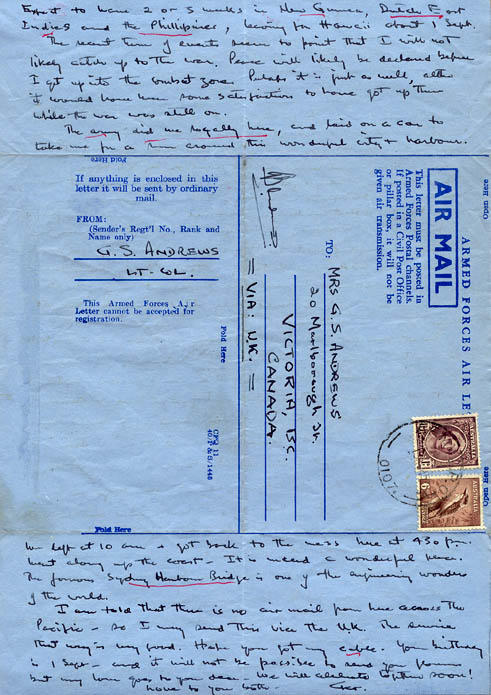 Expect to have 2 or 3 weeks in New Guinea, Dutch East
Indies and the Phillipines, leaving for Hawaii about 1 Sept.
The recent turn of events seem to point that I will not
likely catch up to the war. Peace will likely be declared before
I get up into the combat zone. Perhaps it is just as well, altho
it would have been some satisfaction to have got up there
while the war was still on.
The army did me royally here, and laid on a car to
take me for a turn around this wonderful city & harbour.
Fold Here
If anything is enclosed in this
letter it will be sent by ordinary
mail.
FROM:
(Sender's Regt'l No., Rank and
Name only)
G. S. ANDREWS
LT-COL.
This Armed Forces Air
Letter cannot be accepted for
registration.
Fold Here
CFO 11
40/P&S/1448
ARMED FORCES AIR LE
AIR MAIL
This letter must be posted in
Armed Forces Postal Channels.
If posted in a Civil Post Office
or pillar box, it will not be
given air transmission.
TO: MRS G. S. ANDREWS
20 Marlborough St.
VICTORIA, B.C.
CANADA.
= VIA: U.K. =
Open Here
Open Here
AUSTRALIA
6D
0107
Fold Here
We left at 10 am & got back to the mess here at 430 pm.
Went along up the coast - It is indeed a wonderful place.
The famous Sydney Harbour Bridge is one of the engineering wonders
of the world.
I am told that there is no air mail from here across the
Pacific - so I may send this via the U.K. The service
that way is very good. Hope you got my cable. Your birthday
is 1 Sept - and it will not be possible to send you flowers
but my love goes to you dear - We will celebrate together soon!
Love to you both - Ger.